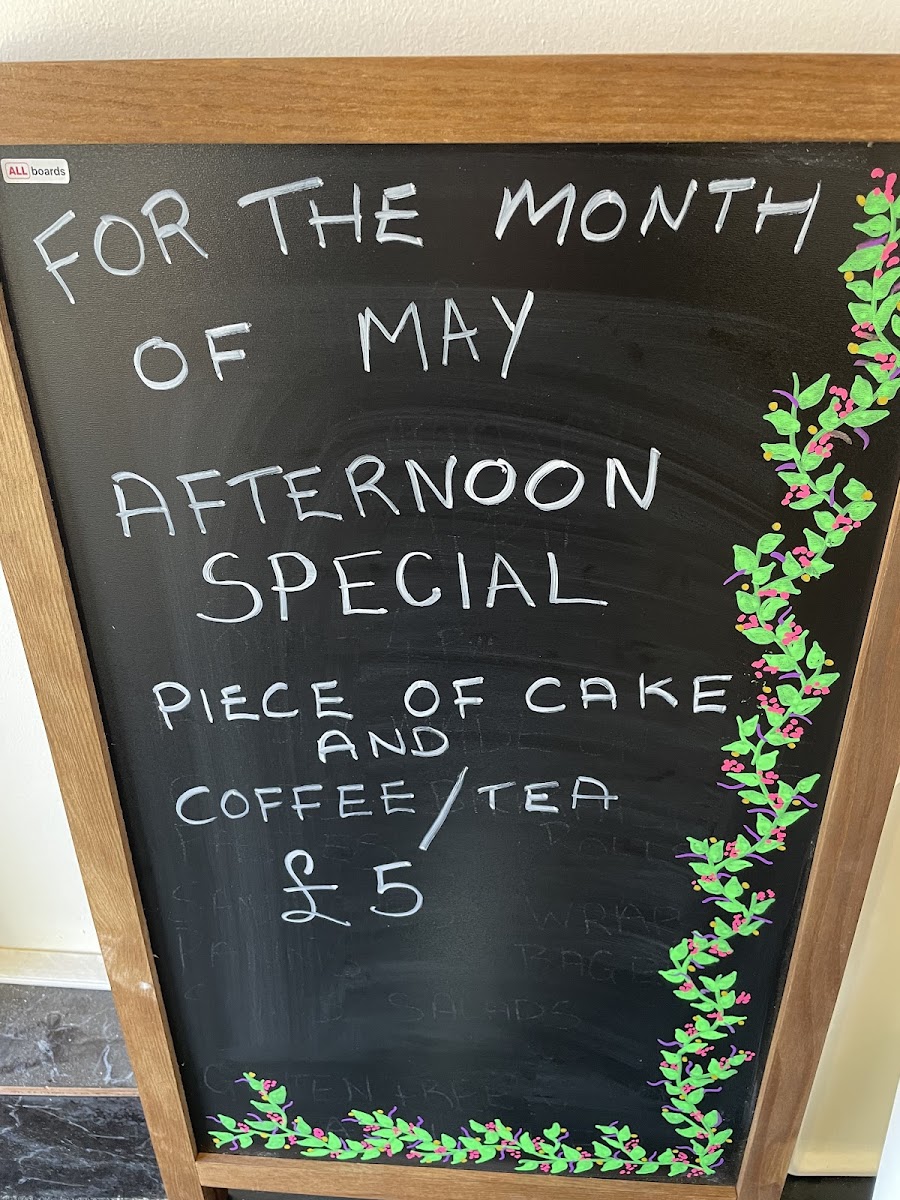 ALL boards
FOR THE MONTH
OF MAY
AFTERNOON
SPECIAL
PIECE OF CAKE
AND
COFFEE/TEA
£5
WRAP
SALADS